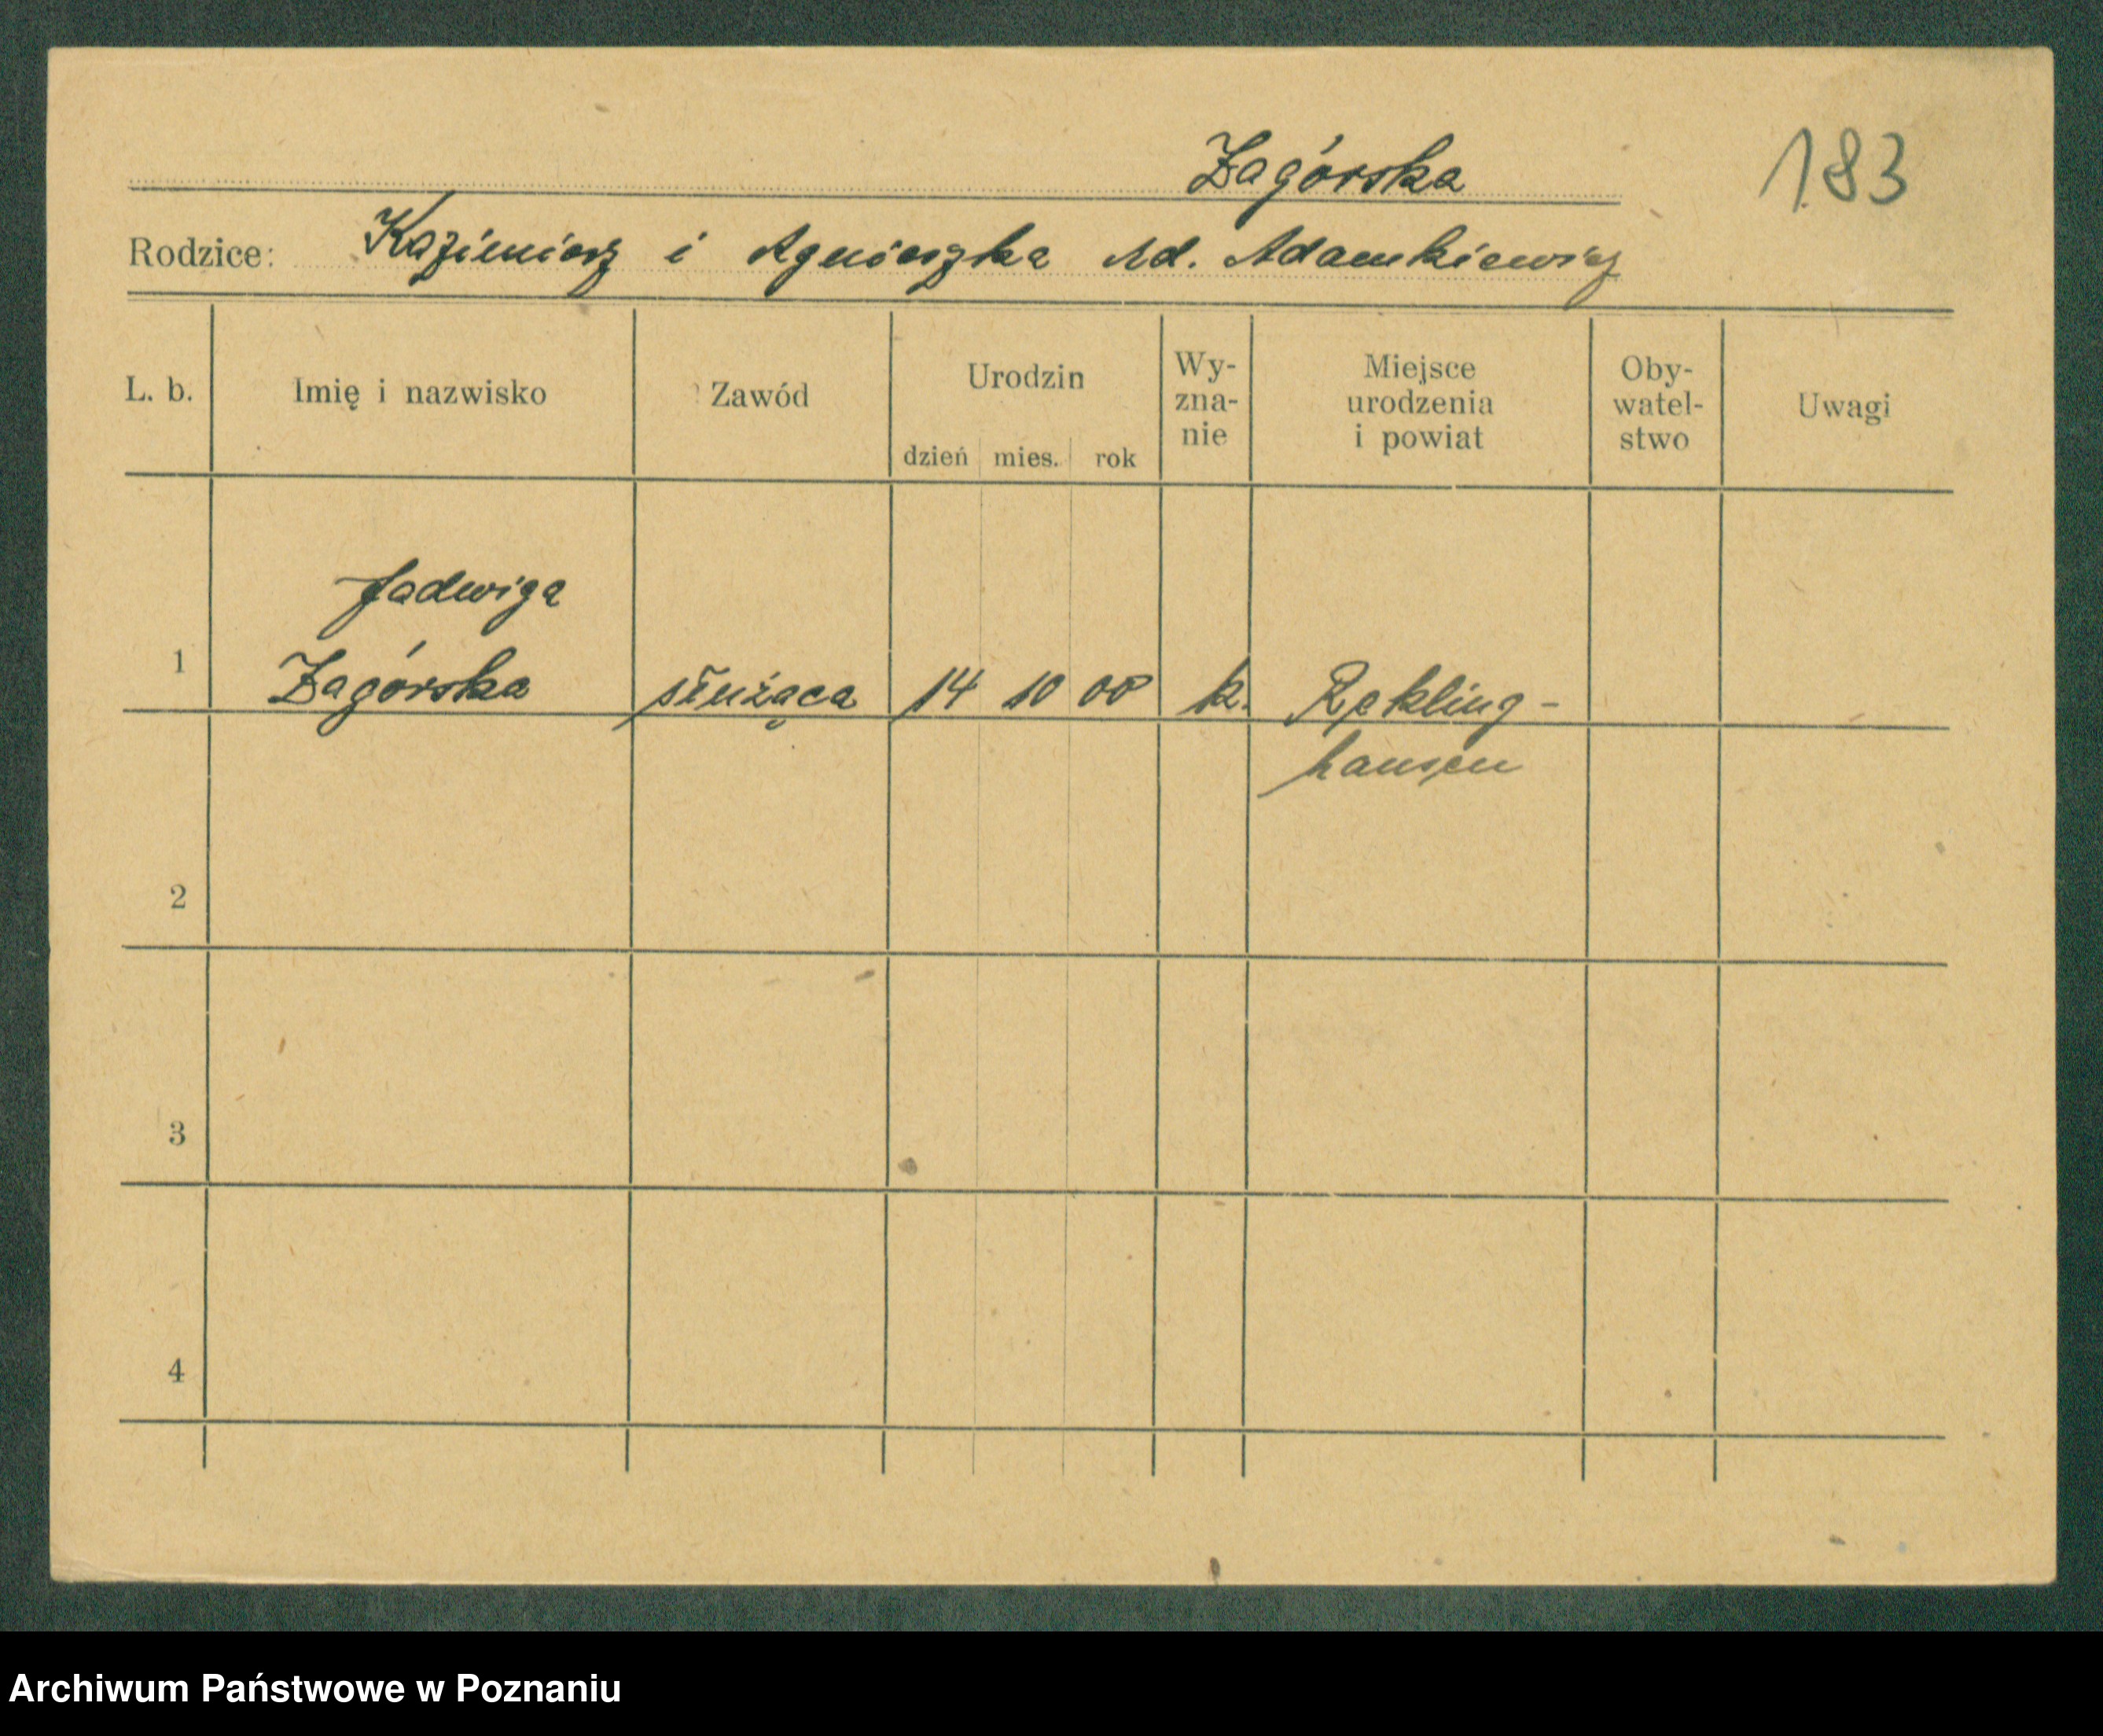 Zagórska
183
Rodzice: Kazimierz i Agnieszka Ad. Adamkiewicz
L. b. Imię i nazwisko Zawód Urodzin dzień mies. rok Wy-zna-nie Miejsce urodzenia i powiat Oby-watel-stwo Uwagi
Jadwiga
1 Zagórska służąca 14 10 00 k. Rekling-
hausen
2
3
4
Archiwum Państwowe w Poznaniu